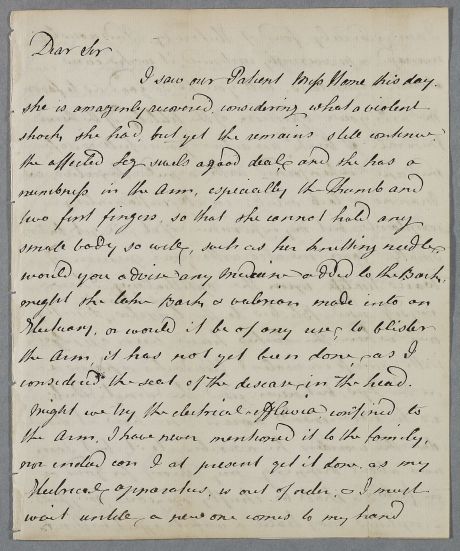 Dear Sir
I saw our Patient Miss Home this day.
she is amazingly recovered, considering what a violent
shock she had, but yet the remains still continue
the affected Leg swels a good deal, and she has a
numbness in the Arm, especially the Thumb and
two first fingers, so that she cannot hold any
small body so well, such as her knitting needle,
would you advise any Medicine added to the Bark,
might she take Bark & valerian made into an
Electuary, or would it be of any use, to blister
the Arm, it has not yet been done, as I
considered the seat of the disease in the head.
Might we try the electrical Effluvia confined to
the Arm, I have never mentioned it to the family,
nor indeed can I at present get it done, as my
Electrical apparatus, is out of order, & I must
wait untill a new one comes to my hand